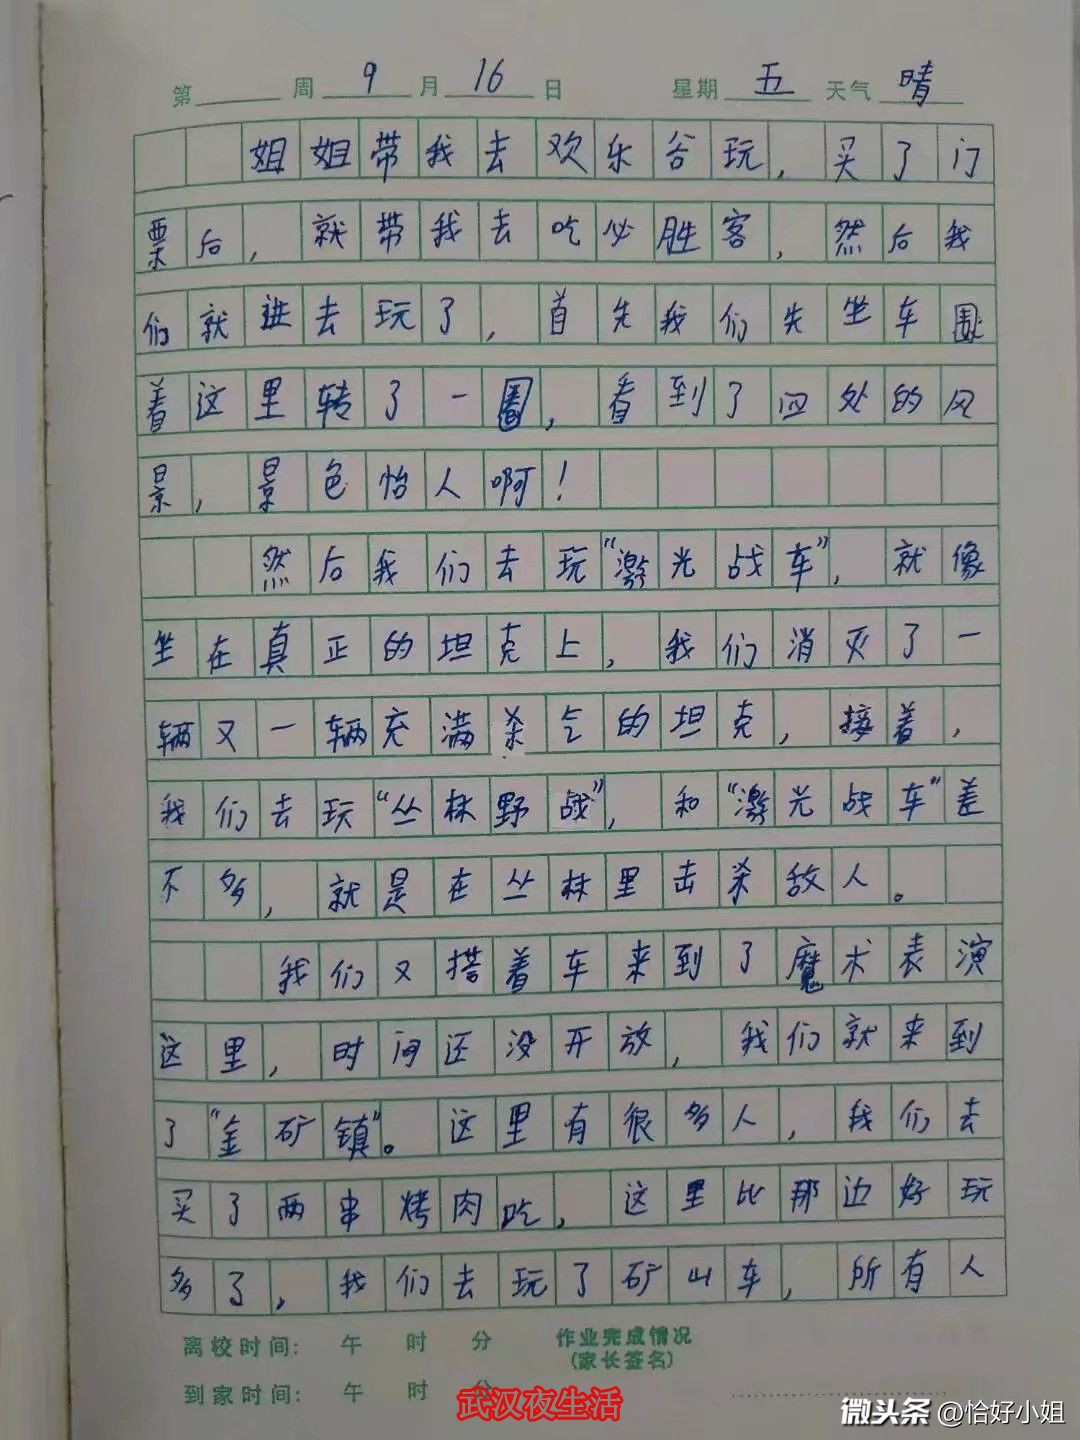 第 周 9 月 16 日 星期 五 天气 晴
姐姐带我去欢乐谷玩，买了门
票后，就带我去吃必胜客，然后我
们就进去玩了，首先我们先坐车围
着这里转了一圈，看到了四处的风
景，景色怡人啊！
然后我们去玩“激光战车”，就像
坐在真正的坦克上，我们消灭了一
辆又一辆充满杀气的坦克，接着，
我们去玩“丛林野战”，和“激光战车”差
不多，就是在丛林里击杀敌人。
我们又搭着车来到了魔术表演
这里，时间还没开放，我们就来到
了“金矿镇”。这里有很多人，我们去
买了两串烤肉吃，这里比那边好玩
多了，我们去玩了矿山车，所有人
离校时间： 午 时 分 作业完成情况
(家长签名)
到家时间： 午 时 分
武汉夜生活
微头条 @恰好小姐